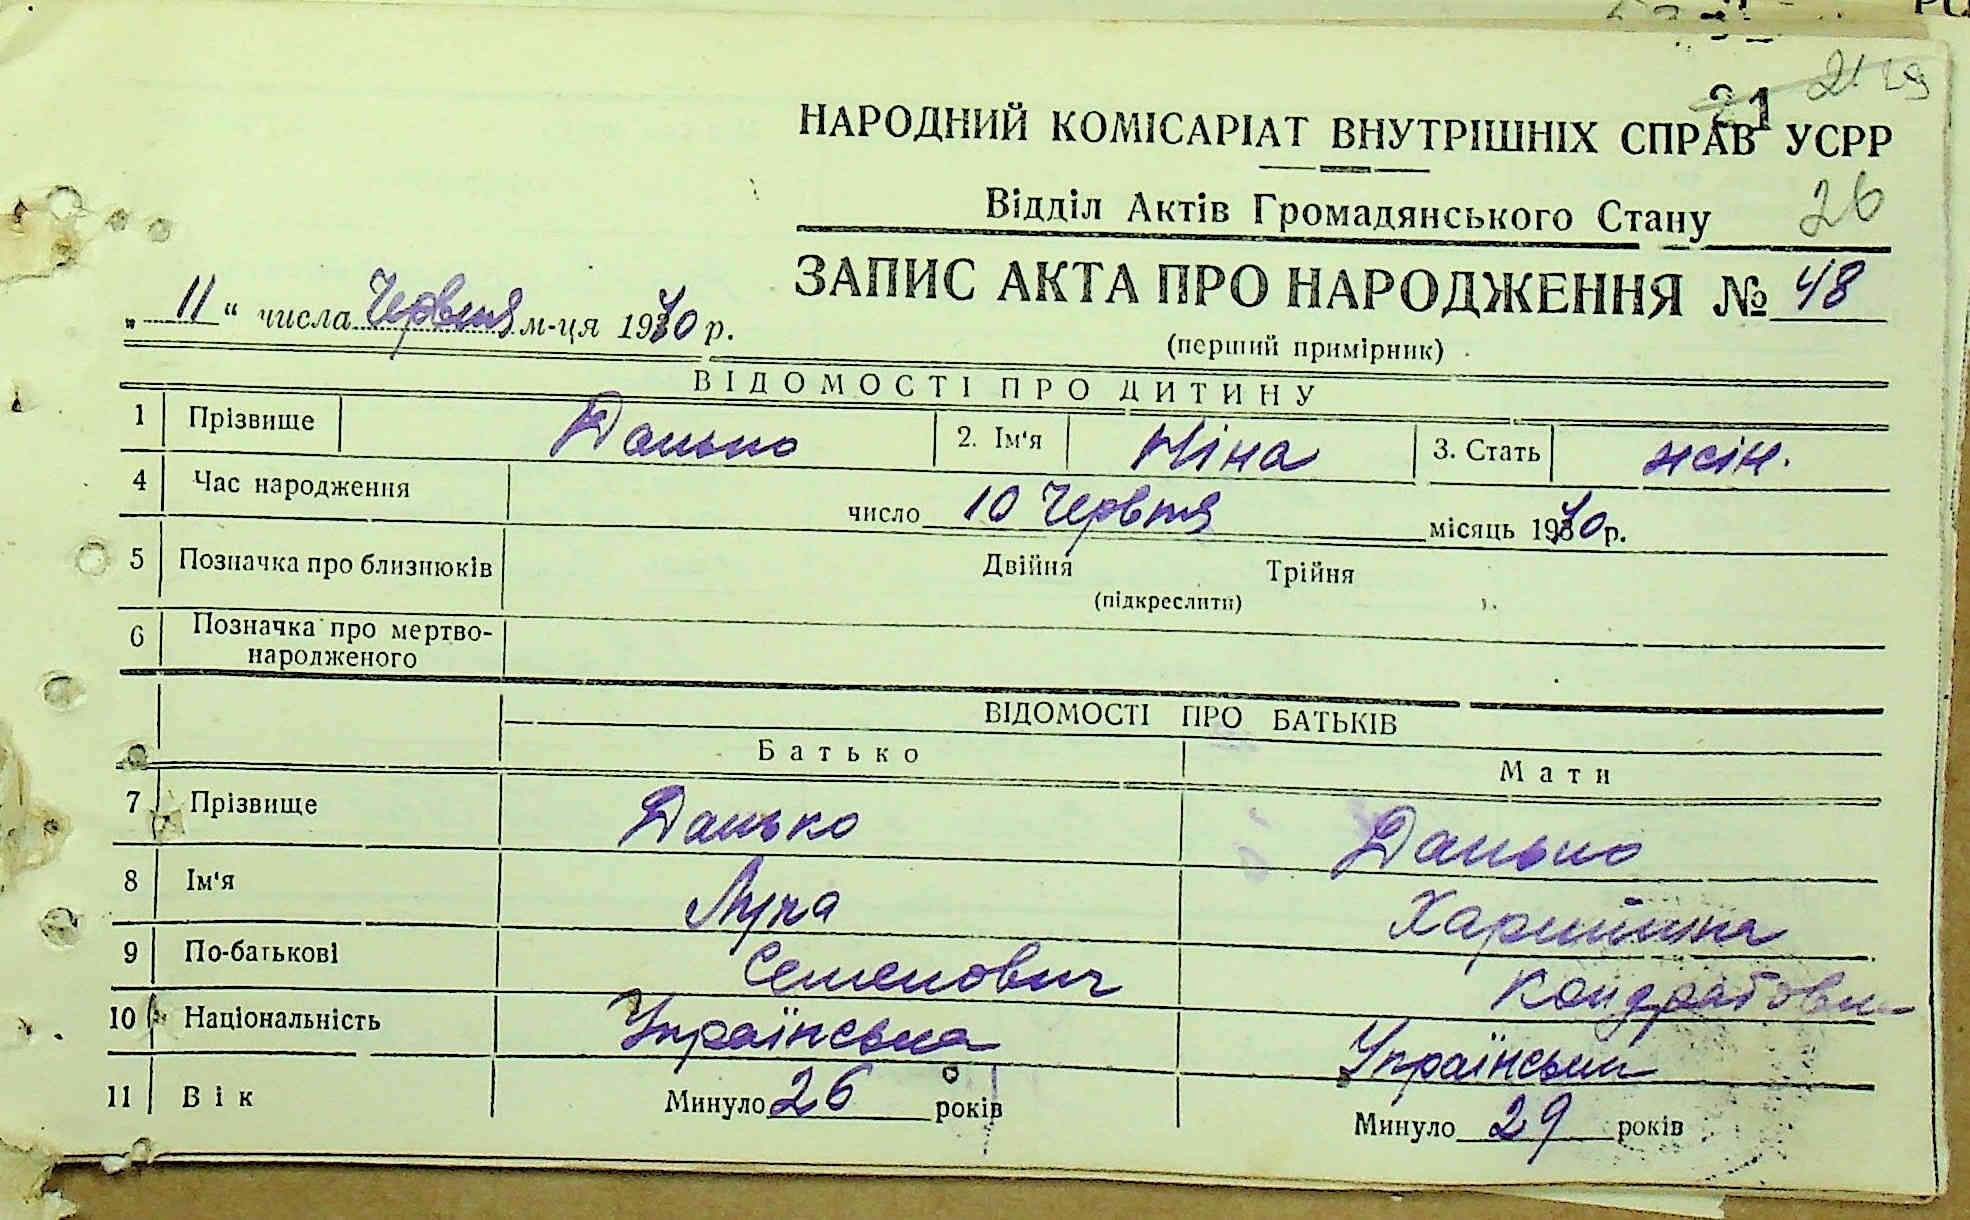 21 29
21
НАРОДНИЙ КОМІСАРІАТ ВНУТРІШНІХ СПРАВ УСРР
Відділ Актів Громадянського Стану 26
ЗАПИС АКТА ПРО НАРОДЖЕННЯ № 48
„ 11 “ числа Червня м-ця 1940 р.
(перший примірник)
ВІДОМОСТІ ПРО ДИТИНУ
1 Прізвище Данько 2. Ім'я Ніна 3. Стать жін.
4 Час народження число 10 Червня місяць 1940 р.
5 Позначка про близнюків Двійня Трійня
(підкреслити)
6 Позначка про мертво-
народженого
ВІДОМОСТІ ПРО БАТЬКІВ
Батько Мати
7 Прізвище Данько Данько
8 Ім'я Лука Харитина
9 По-батькові Семенович Кондратовна
10 Національність Українська Українська
11 Вік Минуло 26 років Минуло 29 років